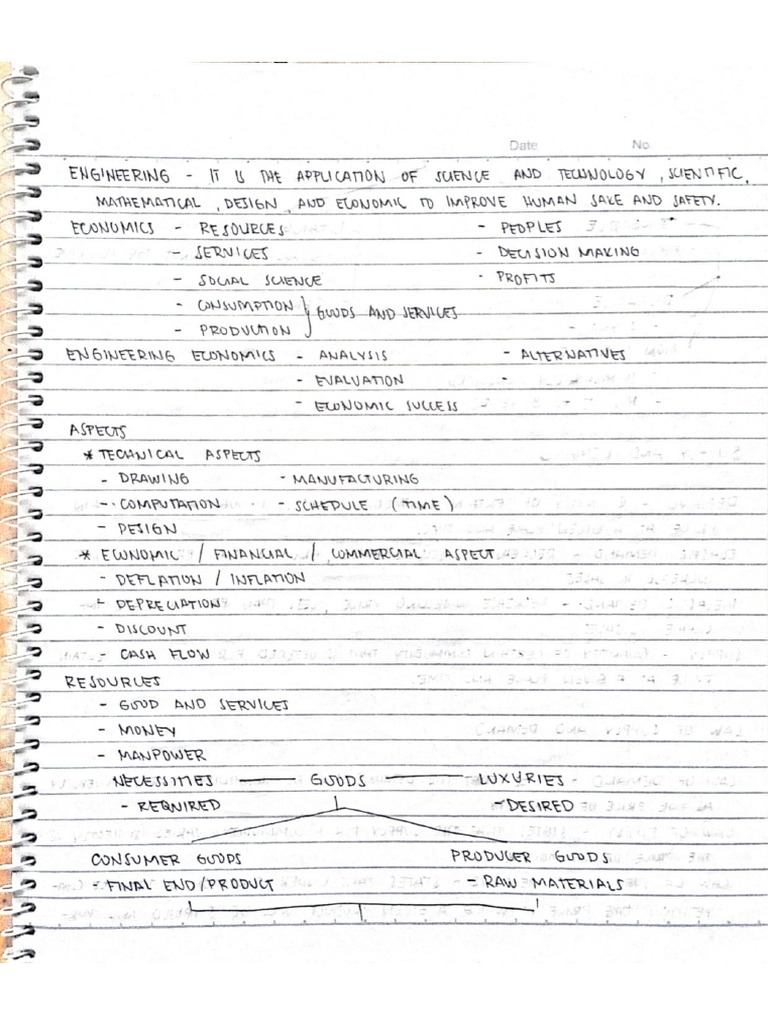 Date No
ENGINEERING - IT IS THE APPLICATION OF SCIENCE AND TECHNOLOGY, SCIENTIFIC,
MATHEMATICAL, DESIGN, AND ECONOMIC TO IMPROVE HUMAN SAKE AND SAFETY.
ECONOMICS - RESOURCES - PEOPLES
- SERVICES - DECISION MAKING
- SOCIAL SCIENCE - PROFITS
- CONSUMPTION } GOODS AND SERVICES
- PRODUCTION
ENGINEERING ECONOMICS - ANALYSIS - ALTERNATIVES
- EVALUATION -
- ECONOMIC SUCCESS
ASPECTS
* TECHNICAL ASPECTS
- DRAWING - MANUFACTURING
- COMPUTATION - SCHEDULE (TIME)
- DESIGN
* ECONOMIC / FINANCIAL / COMMERCIAL ASPECT
- DEFLATION / INFLATION
- DEPRECIATION
- DISCOUNT
- CASH FLOW
RESOURCES
- GOOD AND SERVICES
- MONEY
- MANPOWER
NECESSITIES — GOODS — LUXURIES
- REQUIRED - DESIRED
CONSUMER GOODS PRODUCER GOODS
- FINAL END/PRODUCT - RAW MATERIALS